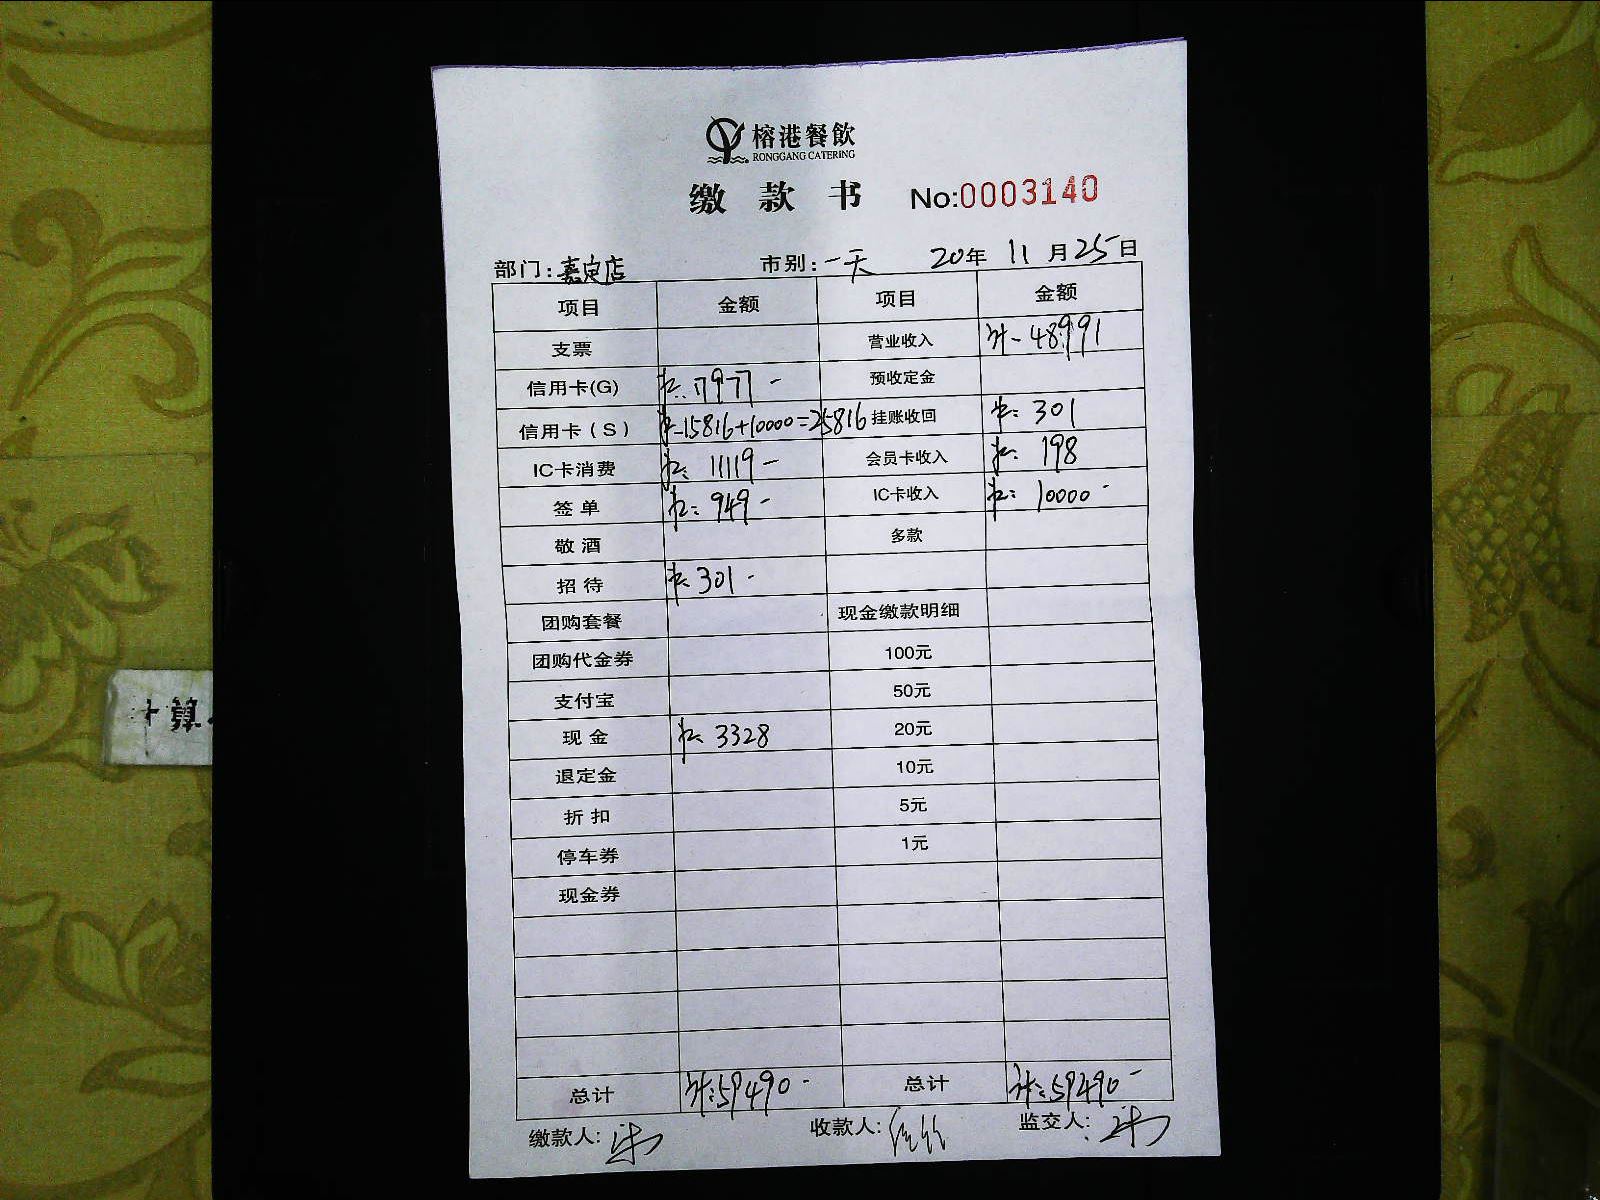 榕港餐飲
RONGGANG CATERING
缴款书 No:0003140
部门:嘉定店 市别:一天 20年 11月25日
项目 金额 项目 金额
支票 营业收入 计-48991
信用卡(G) 17977- 预收定金
信用卡(S) 15816+10000=25816 挂账收回 301
IC卡消费 11119- 会员卡收入 198
签单 949- IC卡收入 10000-
敬酒 多款
招待 301-
团购套餐 现金缴款明细
团购代金券 100元
支付宝 50元
现金 3328 20元
退定金 10元
折扣 5元
停车券 1元
现金券
总计 计:59490- 总计 计:59490-
缴款人: 收款人: 监交人:
算